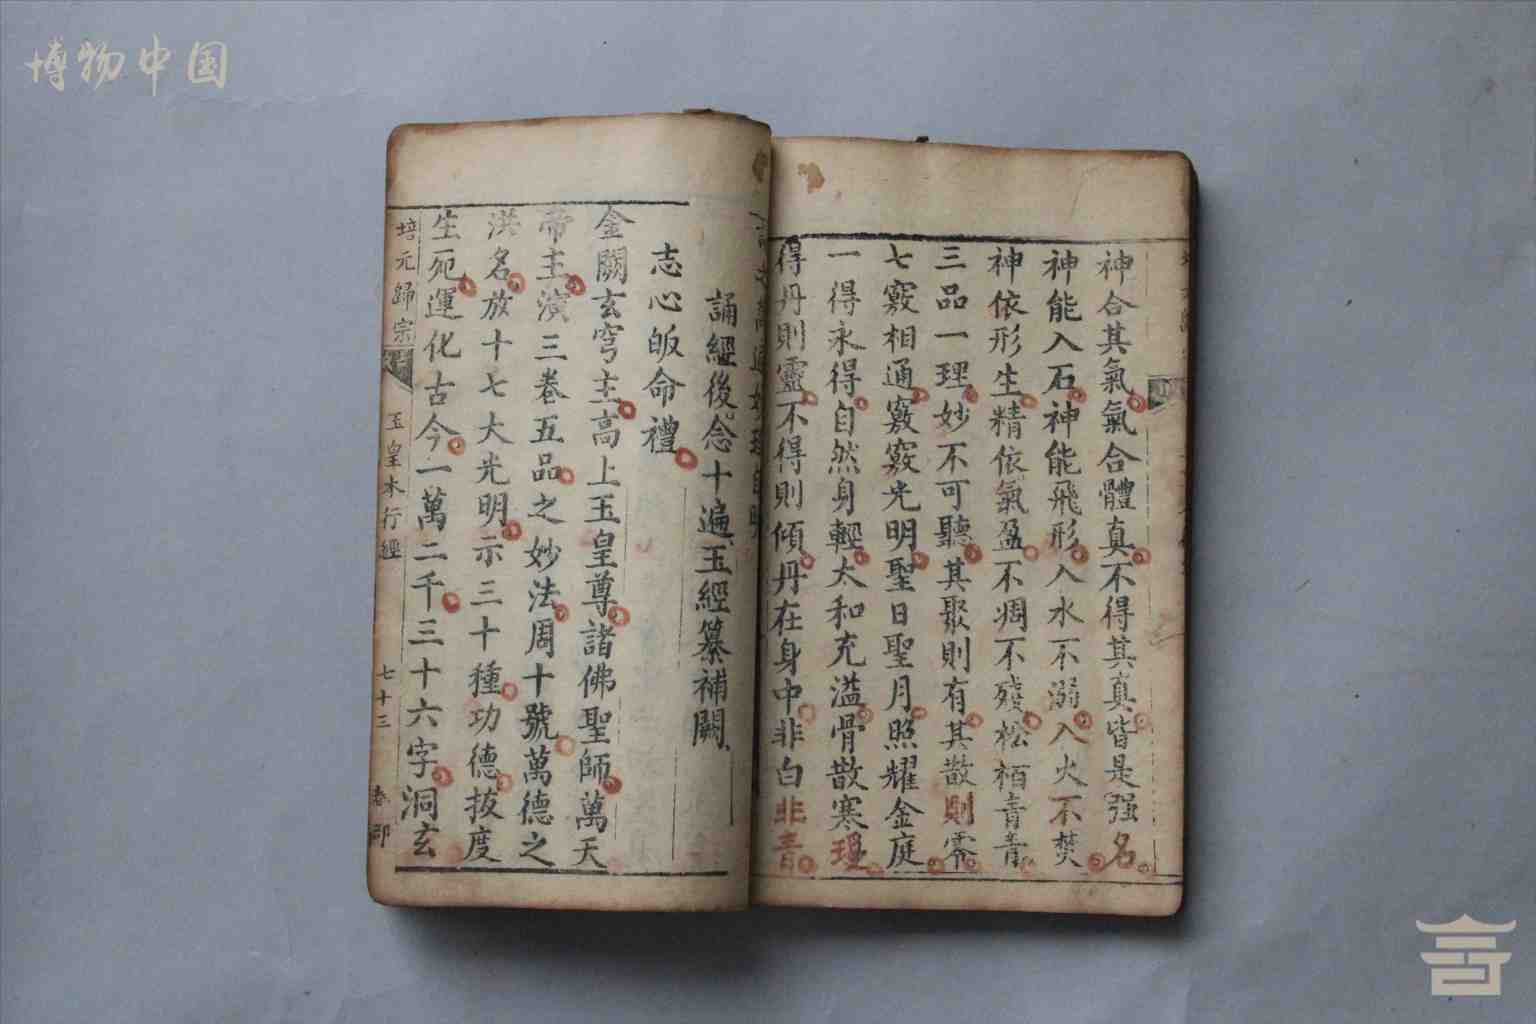 博物中国
神合其氣氣合體真不得其真皆是强名
神能入石神能飛形入水不溺入火不焚
神依形生精依氣盈不凋不殘松栢青青
三品一理妙不可聽其聚則有其散則零
七竅相通竅竅光明聖日聖月照耀金庭
一得永得自然身輕太和充溢骨散寒瓊
得丹則靈不得則傾丹在身中非白非青
誦經後念十遍玉經纂補闕
志心皈命禮
金闕玄穹主高上玉皇尊諸佛聖師萬天
帝主演三卷五品之妙法周十號萬德之
洪名放十七大光明示三十種功德拔度
生死運化古今一萬二千三十六字洞玄
培元歸宗
玉皇本行經
七十三
春部